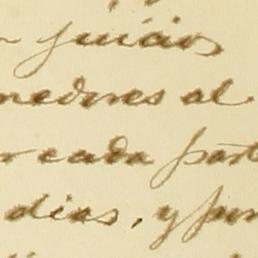 juicios
medores al
cada part
dias, y por